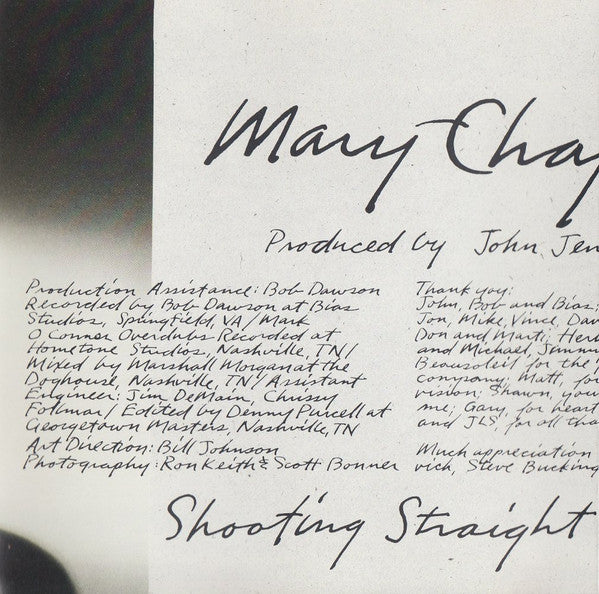 Mary-Chap
Produced by John Jen
Production Assistance: Bob Dawson
Recorded by Bob Dawson at Bias
Studios, Springfield, VA/Mark
O Connor Overdubs Recorded at
Hometone Studios, Nashville, TN/
Mixed by Marshall Morgan at the
Doghouse, Nashville, TN/Assistant
Engineer: Jim DeMain, Chrissy
Follmar/Edited by Denny Purcell at
Georgetown Masters, Nashville, TN
Art Direction: Bill Johnson
Photography: Ron Keith & Scott Bonner
Thank you:
John, Bob and Bias;
Jon, Mike, Vince, Dav
Don and Marti; Her
and Michael, Jimmi
Beausoleil for the
company, Matt, for
vision; Shawn, you
me; Gary, for heart
and JLS, for all tha
Much appreciation
vich, Steve Bucking
Shooting Straight